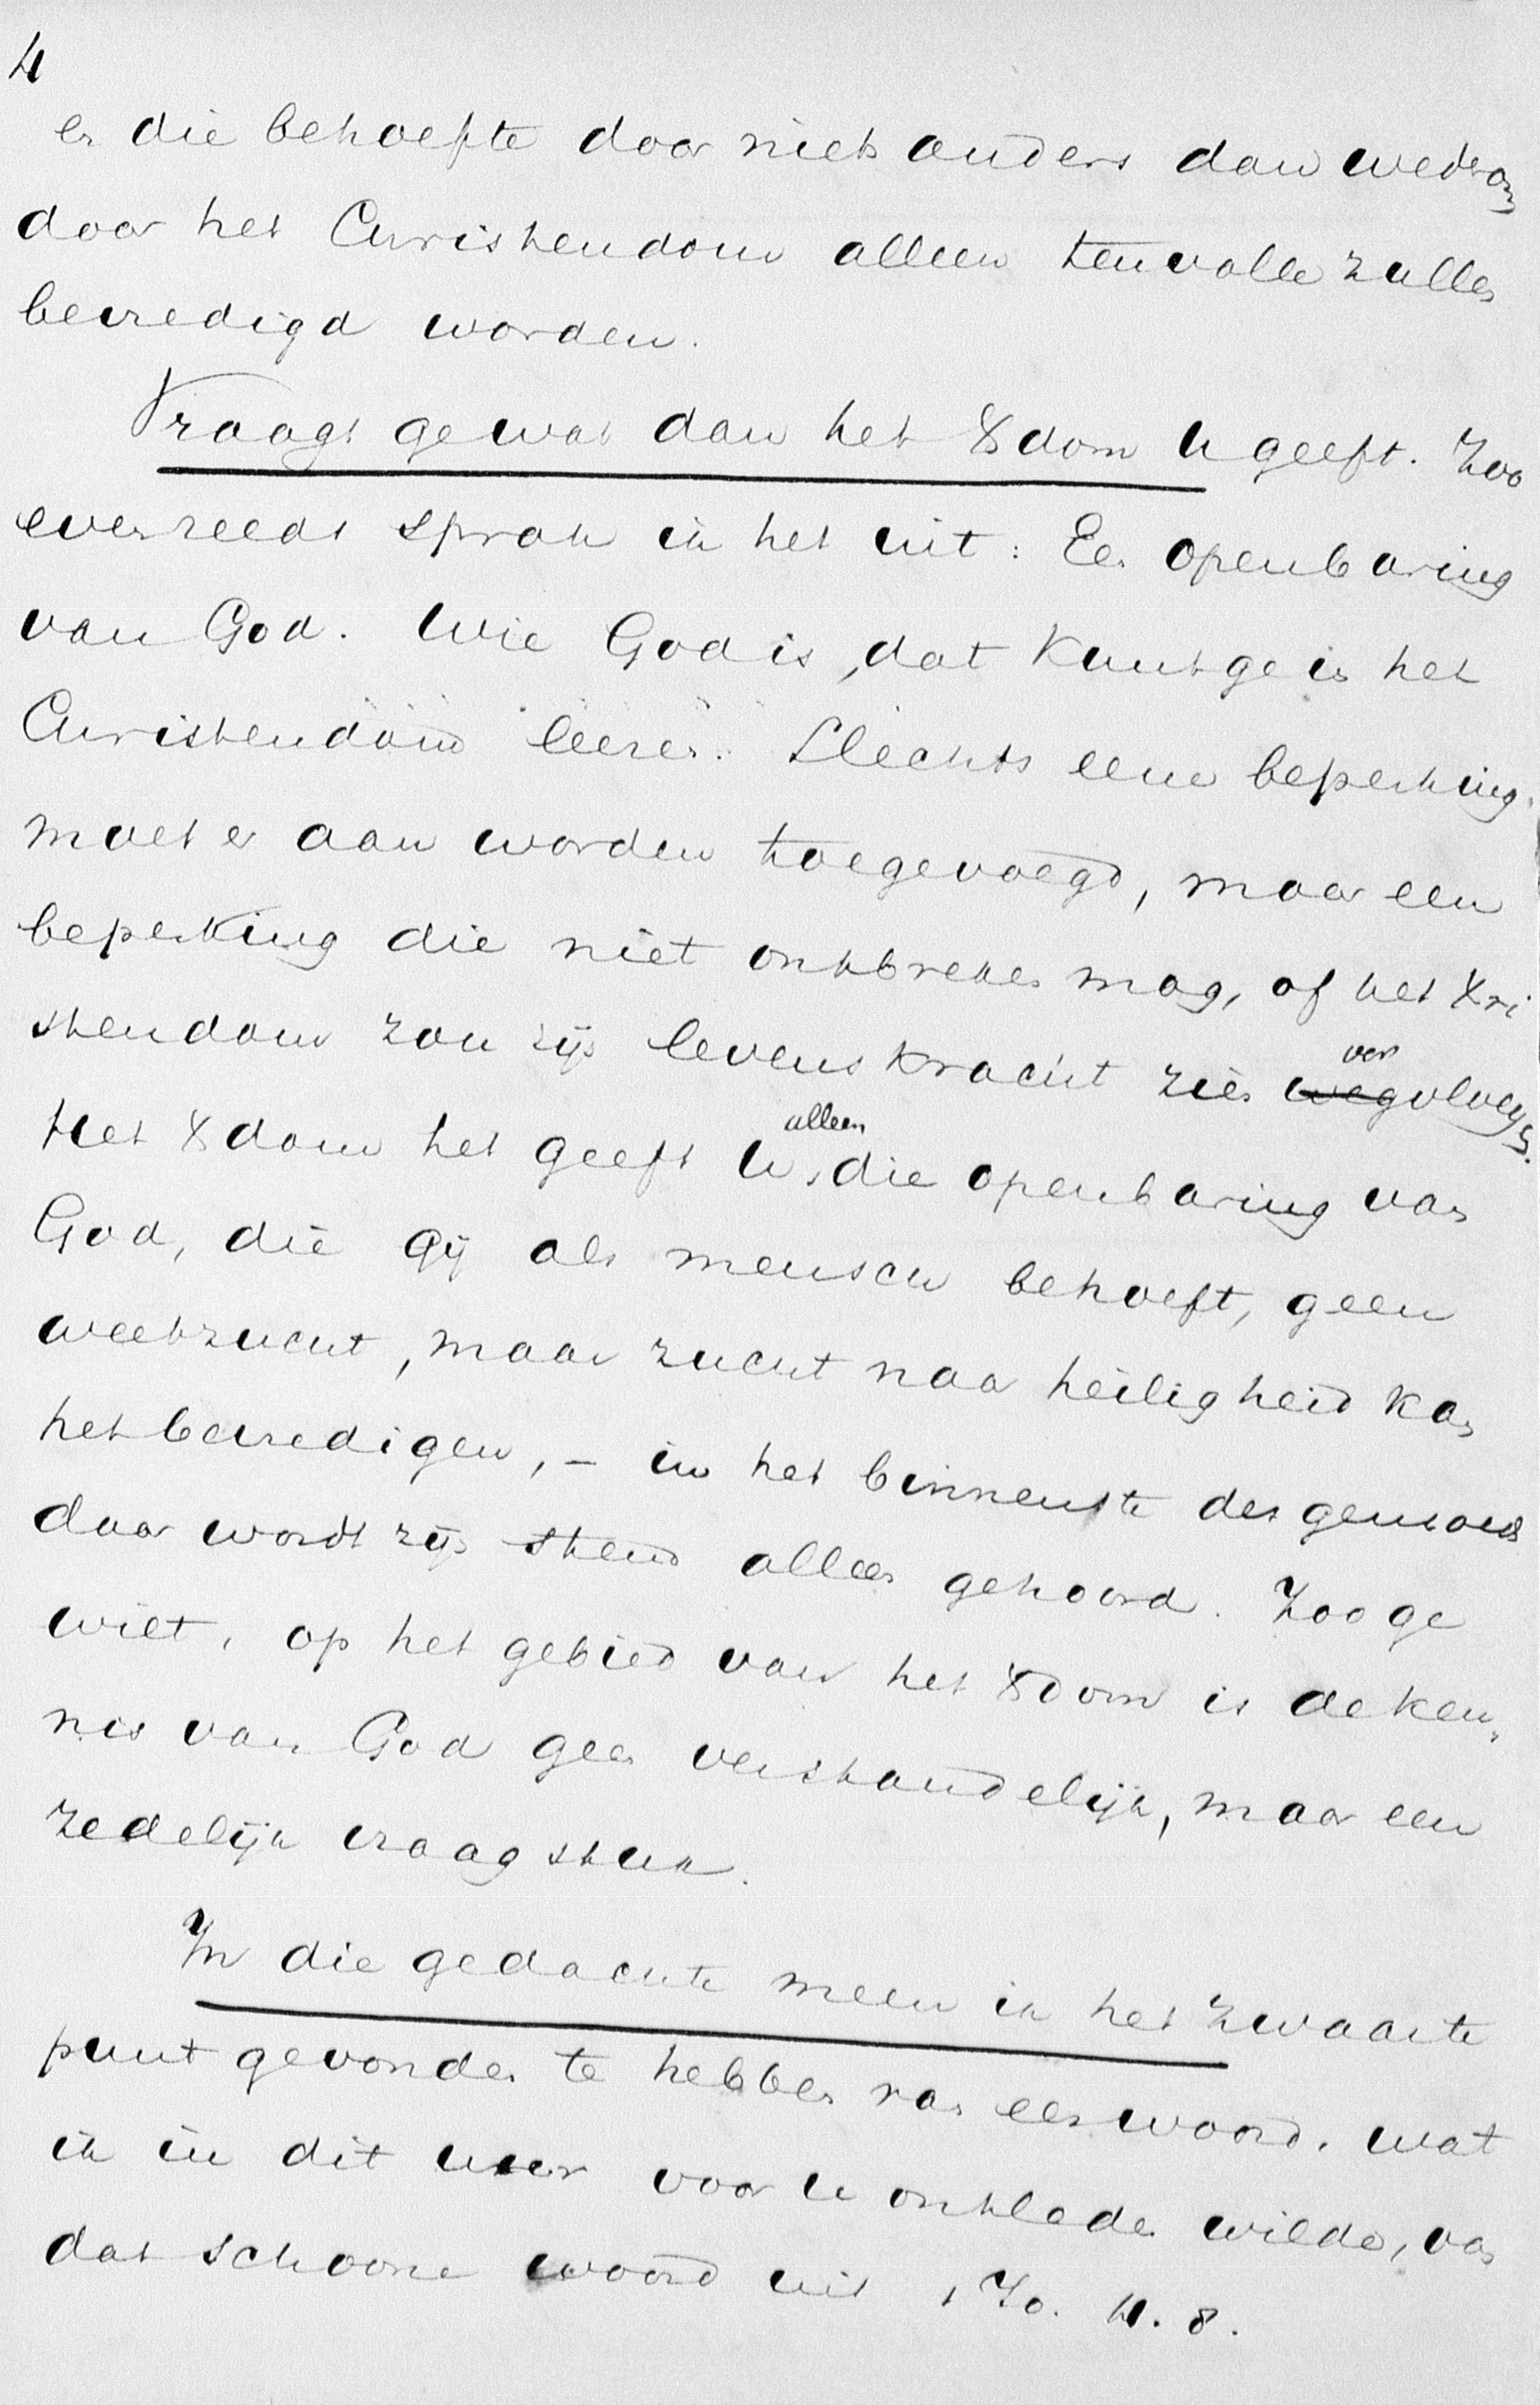 4
en die behoefte door niets anders dan wederom
door het Christendom alleen tenvolle zullen
bevredigd worden.
Vraagt ge wat dan het Xdom U geeft. Zoo
even reeds sprak ik het uit: Een openbaring
van God. Wie God is, dat kunt ge in het
Christendom leeren. Slechts eene beperking
moet er aan worden toegevoegd, maar een
beperking die niet ontbreken mag, of het Xri
stendom zou zijn levenskracht zien vervloeyen.
Het Xdom het geeft U alleen, die openbaring van
God, die gij als mensch behoeft, geen
weetzucht, maar zucht naar heiligheid kan
het bevredigen, – in het binnenste des gemoeds
daar wordt zijn stem alleen gehoord. Zoo ge
wilt, op het gebied van het Xdom is de ken-
nis van God geen verstandelijk, maar een
zedelijk vraagstuk.
In die gedachte meen ik het zwaarte
punt gevonden te hebben van een woord, wat
ik in dit uur voor U ontleden wilde, van
dat schoone woord uit 1 Jo. 4. 8.